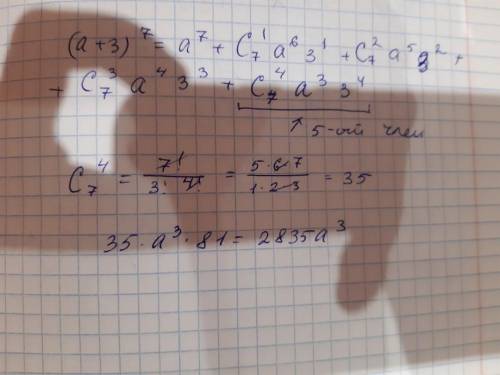 (a+3)⁷ = a⁷ + C₇¹ a⁶ 3¹ + C₇² a⁵ 3² +
+ C₇³ a⁴ 3³ + C₇⁴ a³ 3⁴
↑ 5-ый член
C₇⁴ = 7!/(3! 4!) = (5·6·7)/(1·2·3) = 35
35 · a³ · 81 = 2835a³